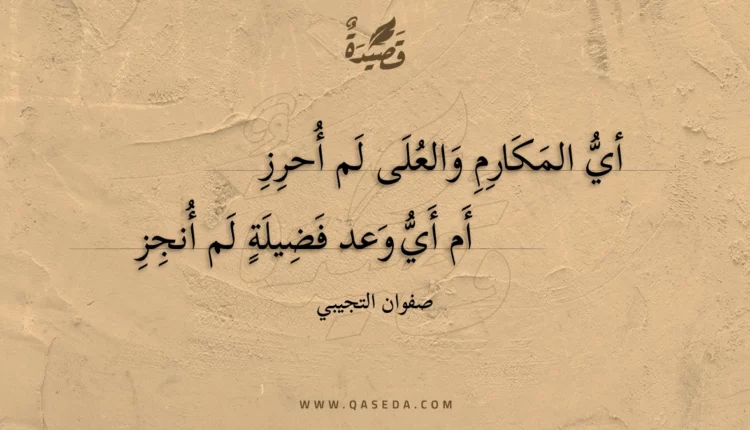 قَصِيدَةٌ
أيُّ المَكَارِمِ وَالعُلَى لَم أُحرِزِ
أَم أَيُّ وَعد فَضِيلَةٍ لَم أُنجِزِ
صفوان التجيبي
WWW.QASEDA.COM